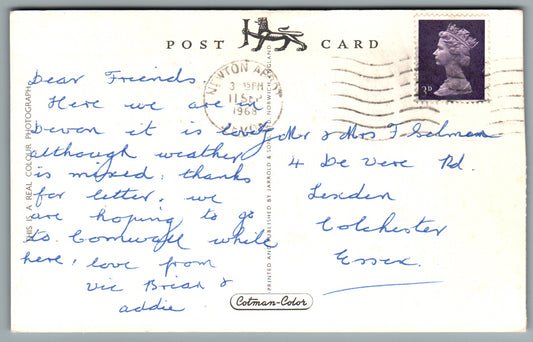 POST CARD
NEWTON ABBOT
3 45PM
11 SEP
1968
DEVON
3D
Dear Friends.
Here we are in
Devon it is lovely
although weather
is mixed: thanks
for letter, we
are hoping to go
to Cornwall while
here, love from
Vic Brian &
addie
Mr & Mrs F
4 De Vere Rd.
Lexden
Colchester
Essex.
THIS IS A REAL COLOUR PHOTOGRAPH
PRINTED AND PUBLISHED BY JARROLD & SONS LTD. NORWICH, ENGLAND
Cotman-Color